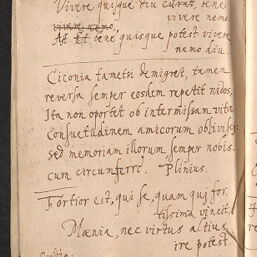 Vivere quisque diu curat, bene
vivere nemo
At Et bene quisque potest vivere
nemo diu.
Ciconia tametsi demigret, tamen
reversa semper eosdem repetit nidos,
Ita non oportet ob intermissam vitæ
consuetudinem amicorum oblivisci
sed memoriam illorum semper nobis
cum circumferre. Plinius.
Fortior est, qui se, quam qui for
tissima vincit
Mœnia, nec virtus altius
ire potest.